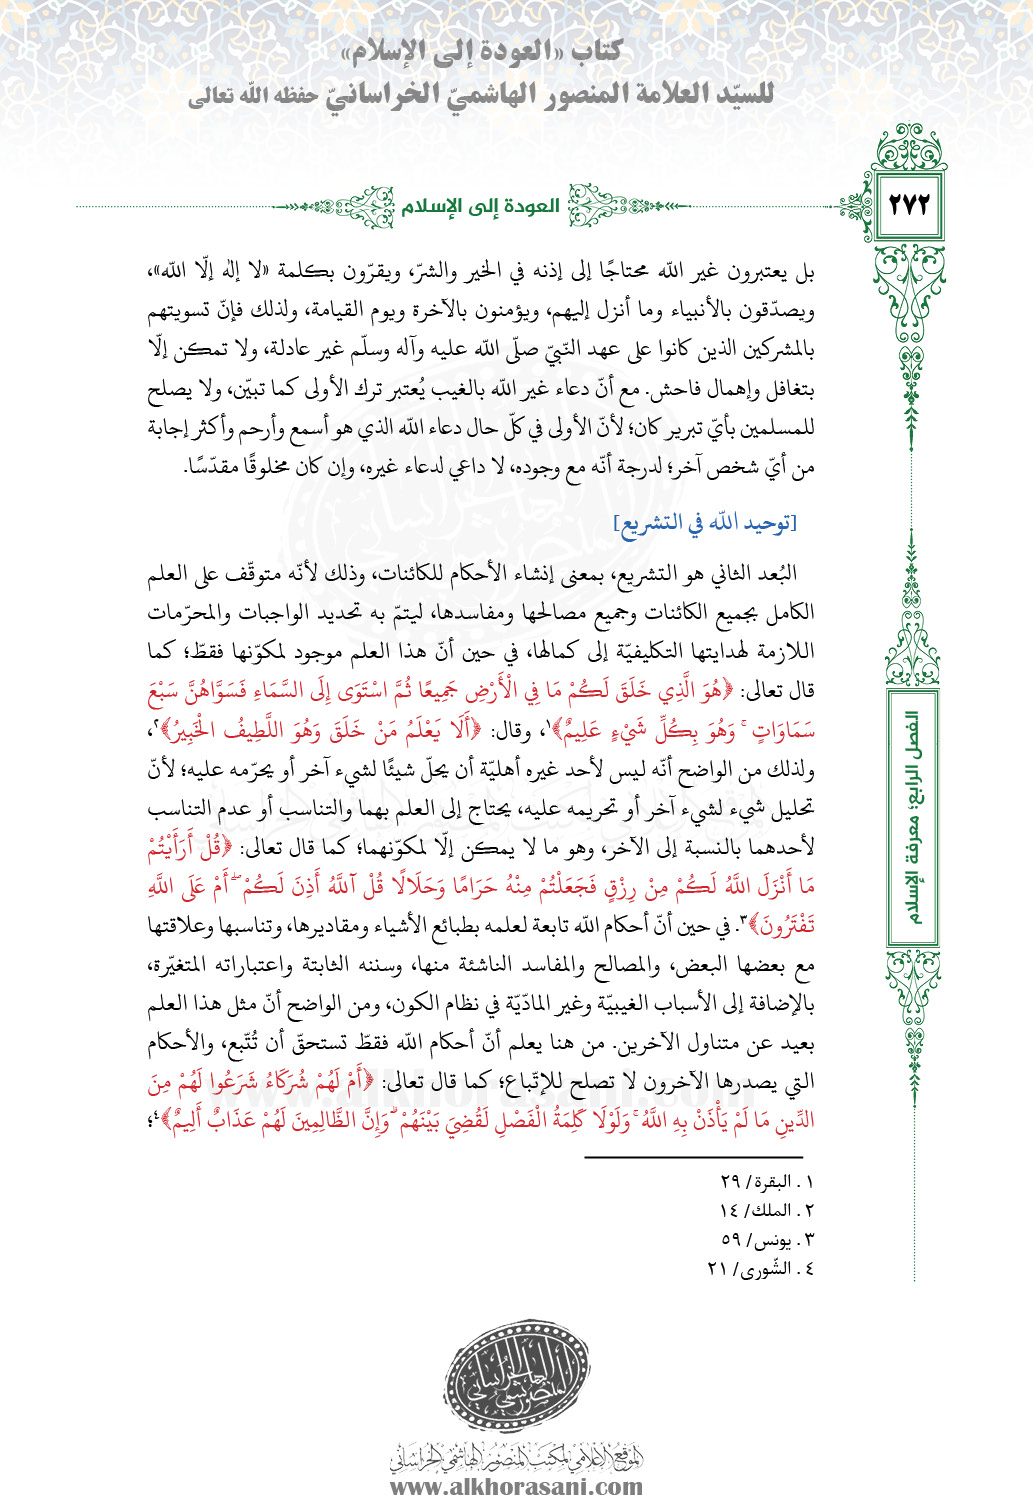 كتاب «العودة إلى الإسلام»
للسيّد العلامة المنصور الهاشميّ الخراسانيّ حفظه الله تعالى
٢٧٢
العودة إلى الإسلام
بل يعتبرون غير الله محتاجًا إلى إذنه في الخير والشرّ، ويقرّون بكلمة «لا إله إلّا الله»،
ويصدّقون بالأنبياء وما أنزل إليهم، ويؤمنون بالآخرة ويوم القيامة، ولذلك فإنّ تسويتهم
بالمشركين الذين كانوا على عهد النّبيّ صلّى الله عليه وآله وسلّم غير عادلة، ولا تمكن إلّا
بتغافل وإهمال فاحش. مع أنّ دعاء غير الله بالغيب يُعتبر ترك الأولى كما تبيّن، ولا يصلح
للمسلمين بأيّ تبرير كان؛ لأنّ الأولى في كلّ حال دعاء الله الذي هو أسمع وأرحم وأكثر إجابة
من أيّ شخص آخر؛ لدرجة أنّه مع وجوده، لا داعي لدعاء غيره، وإن كان مخلوقًا مقدّسًا.
[توحيد الله في التشريع]
البُعد الثاني هو التشريع، بمعنى إنشاء الأحكام للكائنات، وذلك لأنّه متوقّف على العلم
الكامل بجميع الكائنات وجميع مصالحها ومفاسدها، ليتمّ به تحديد الواجبات والمحرّمات
اللازمة لهدايتها التكليفيّة إلى كمالها، في حين أنّ هذا العلم موجود لمكوّنها فقطّ؛ كما
قال تعالى: ﴿هُوَ الَّذِي خَلَقَ لَكُمْ مَا فِي الْأَرْضِ جَمِيعًا ثُمَّ اسْتَوَى إِلَى السَّمَاءِ فَسَوَّاهُنَّ سَبْعَ
سَمَاوَاتٍ ۚ وَهُوَ بِكُلِّ شَيْءٍ عَلِيمٌ﴾١، وقال: ﴿أَلَا يَعْلَمُ مَنْ خَلَقَ وَهُوَ اللَّطِيفُ الْخَبِيرُ﴾٢،
ولذلك من الواضح أنّه ليس لأحد غيره أهليّة أن يحلّ شيئًا لشيء آخر أو يحرّمه عليه؛ لأنّ
تحليل شيء لشيء آخر أو تحريمه عليه، يحتاج إلى العلم بهما والتناسب أو عدم التناسب
لأحدهما بالنسبة إلى الآخر، وهو ما لا يمكن إلّا لمكوّنهما؛ كما قال تعالى: ﴿قُلْ أَرَأَيْتُمْ
مَا أَنْزَلَ اللَّهُ لَكُمْ مِنْ رِزْقٍ فَجَعَلْتُمْ مِنْهُ حَرَامًا وَحَلَالًا قُلْ آللَّهُ أَذِنَ لَكُمْ ۖ أَمْ عَلَى اللَّهِ
تَفْتَرُونَ﴾٣. في حين أنّ أحكام الله تابعة لعلمه بطبائع الأشياء ومقاديرها، وتناسبها وعلاقتها
مع بعضها البعض، والمصالح والمفاسد الناشئة منها، وسننه الثابتة واعتباراته المتغيّرة،
بالإضافة إلى الأسباب الغيبيّة وغير المادّيّة في نظام الكون، ومن الواضح أنّ مثل هذا العلم
بعيد عن متناول الآخرين. من هنا يعلم أنّ أحكام الله فقطّ تستحقّ أن تُتّبع، والأحكام
التي يصدرها الآخرون لا تصلح للإتّباع؛ كما قال تعالى: ﴿أَمْ لَهُمْ شُرَكَاءُ شَرَعُوا لَهُمْ مِنَ
الدِّينِ مَا لَمْ يَأْذَنْ بِهِ اللَّهُ ۚ وَلَوْلَا كَلِمَةُ الْفَصْلِ لَقُضِيَ بَيْنَهُمْ ۗ وَإِنَّ الظَّالِمِينَ لَهُمْ عَذَابٌ أَلِيمٌ﴾٤؛
١. البقرة/ ٢٩
٢. الملك/ ١٤
٣. يونس/ ٥٩
٤. الشّورى/ ٢١
الفصل الرابع؛ معرفة الإسلام
المنصور الهاشمي الخراساني
الموقع الإعلامي لمكتب المنصور الهاشمي الخراساني
www.alkhorasani.com